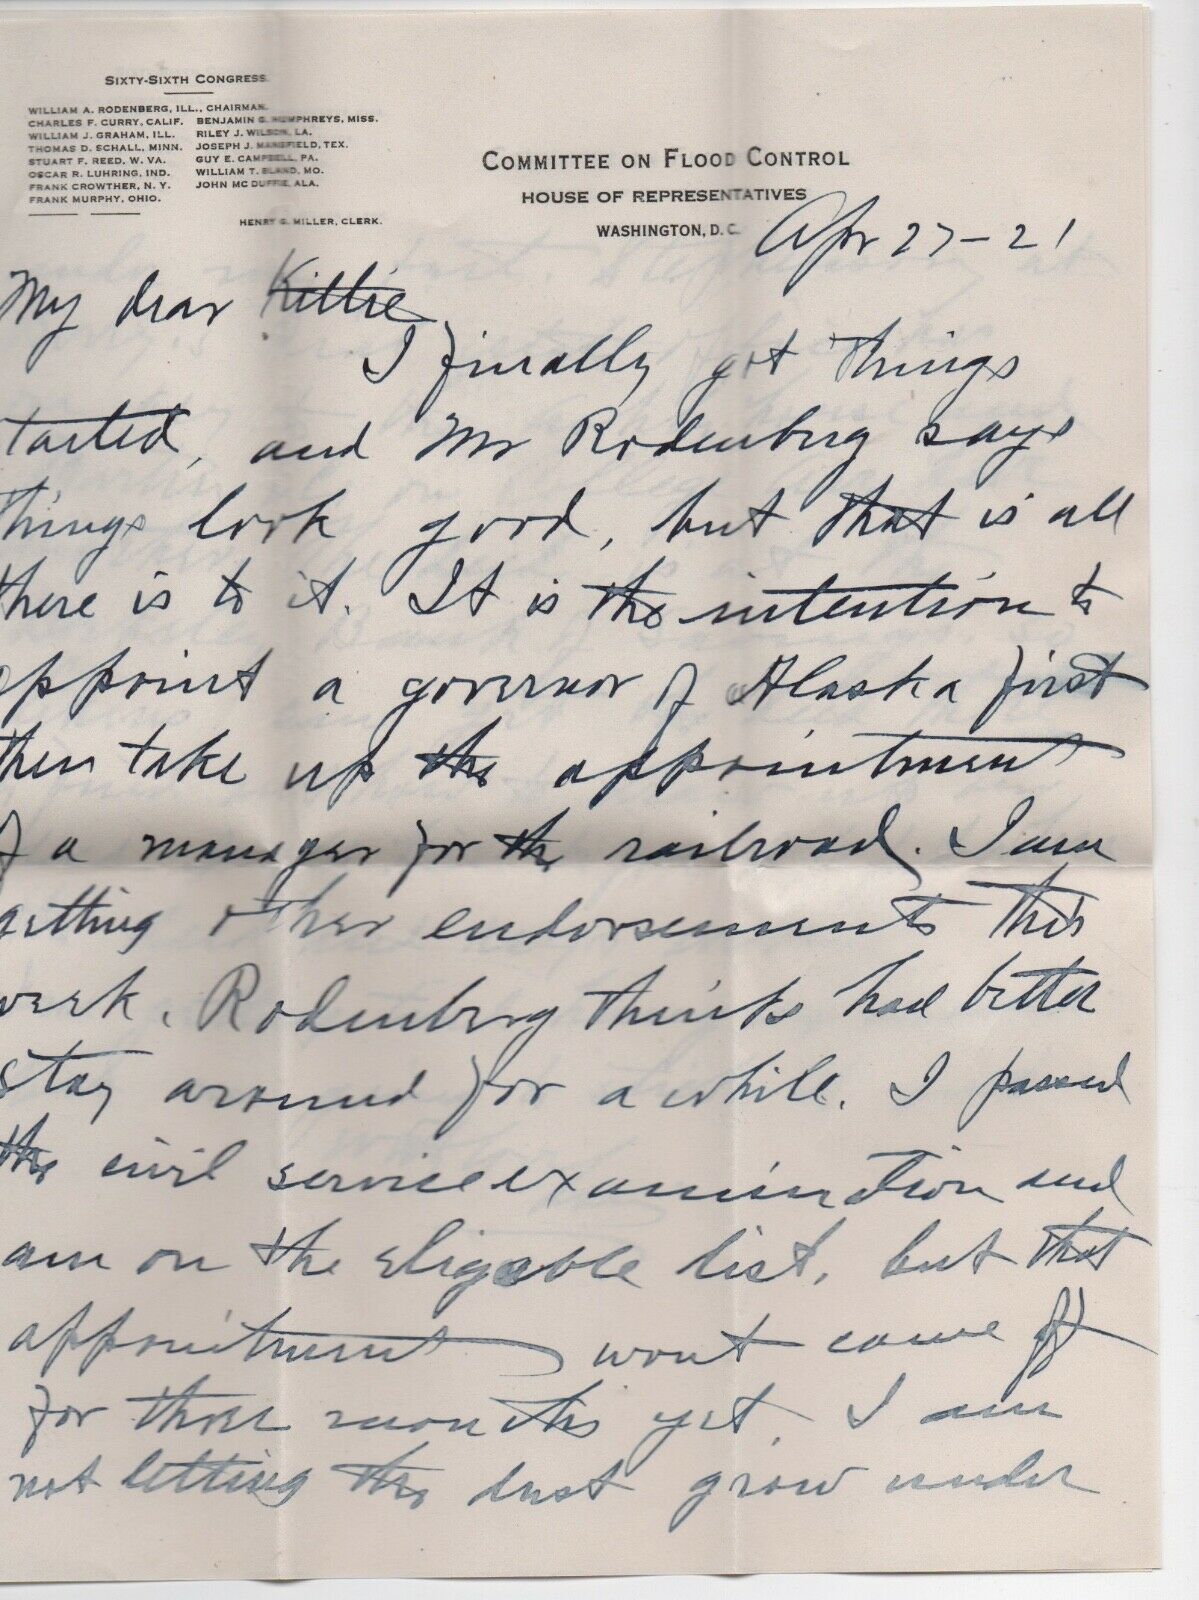 SIXTY-SIXTH CONGRESS.
WILLIAM A. RODENBERG, ILL., CHAIRMAN.
CHARLES F. CURRY, CALIF. BENJAMIN G. HUMPHREYS, MISS.
WILLIAM J. GRAHAM, ILL. RILEY J. WILSON, LA.
THOMAS D. SCHALL, MINN. JOSEPH J. MANSFIELD, TEX.
STUART F. REED, W. VA. GUY E. CAMPBELL, PA.
OSCAR R. LUHRING, IND. WILLIAM T. BLAND, MO.
FRANK CROWTHER, N. Y. JOHN MC DUFFIE, ALA.
FRANK MURPHY, OHIO.
HENRY G. MILLER, CLERK.
COMMITTEE ON FLOOD CONTROL
HOUSE OF REPRESENTATIVES
WASHINGTON, D. C.
Apr 27-21
My dear Kittie
I finally got things
tarted, and Mr Rodenberg says
things look good, but that is all
there is to it. It is the intention to
appoint a governor of Alaska first
then take up the appointment
of a manager for the railroad. I am
getting other endorsements this
week. Rodenberg thinks had better
stay around for a while. I passed
the civil service examination and
am on the eligable list, but that
appointment wont come off
for three months yet. I am
not letting the dust grow under